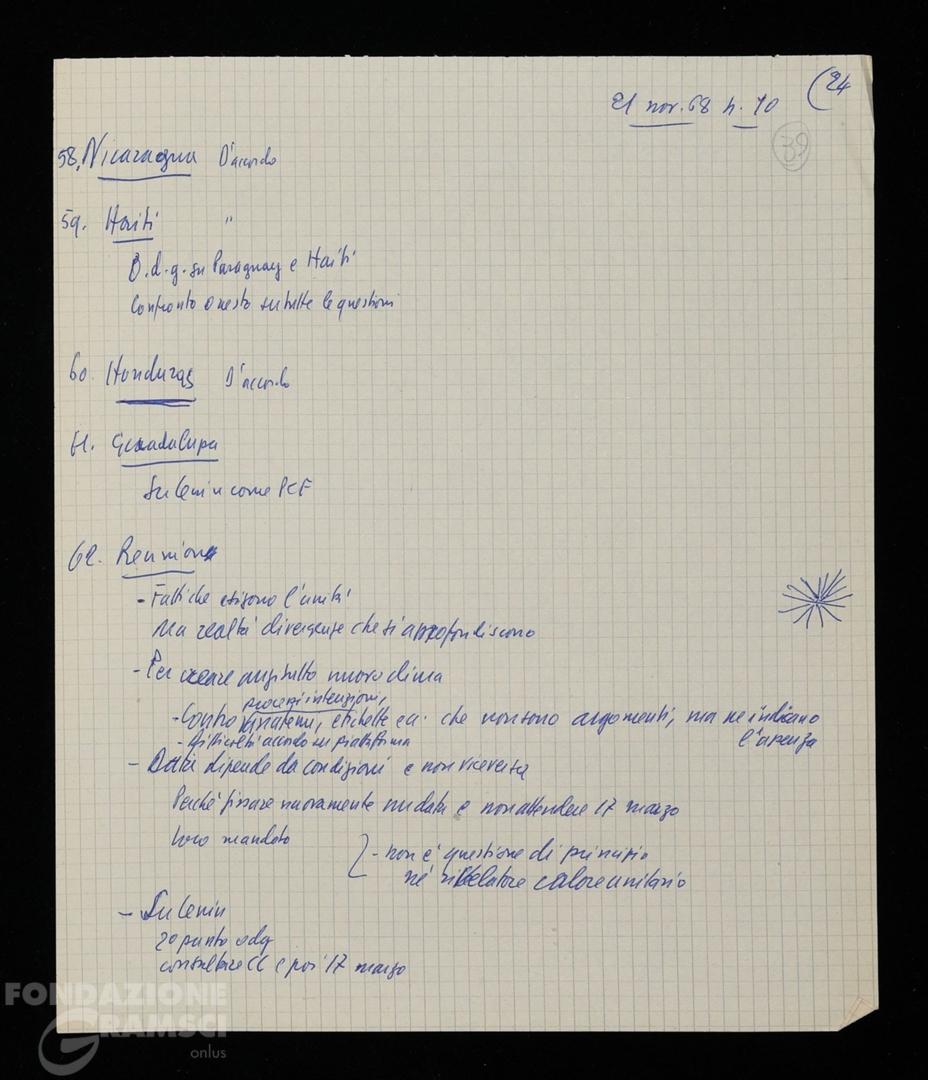 (24
21 nov. 68 h. 10
39
58. Nicaragua D'accordo
59. Haiti "
O.d.g. su Paraguay e Haiti
Confronto onesto su tutte le questioni
60. Honduras D'accordo
61. Guadalupa
Su Lenin come PCF
62. Reunion
- Fatti che esigono l'unità
Ma realtà divergenze che si approfondiscono
- Per creare anzitutto nuovo clima
processi intenzioni,
- Contro etichette ecc. che non sono argomenti, ma ne indicano
l'assenza
- difficoltà accordo su piattaforma
- Data dipende da condizioni e non viceversa
Perché fissare nuovamente una data e non attendere 17 marzo
loro mandato
- non è questione di principio
né rivelatore calore unitario
- Su Lenin
2o punto odg
consultare CC e poi 17 marzo
FONDAZIONE
GRAMSCI
onlus